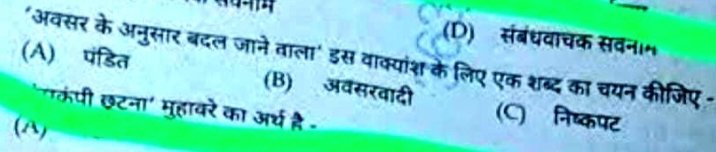 (D) संबंधवाचक सर्वनाम
'अवसर के अनुसार बदल जाने वाला' इस वाक्यांश के लिए एक शब्द का चयन कीजिए -
(A) पंडित (B) अवसरवादी (C) निष्कपट
छूटना' मुहावरे का अर्थ है -
(A)